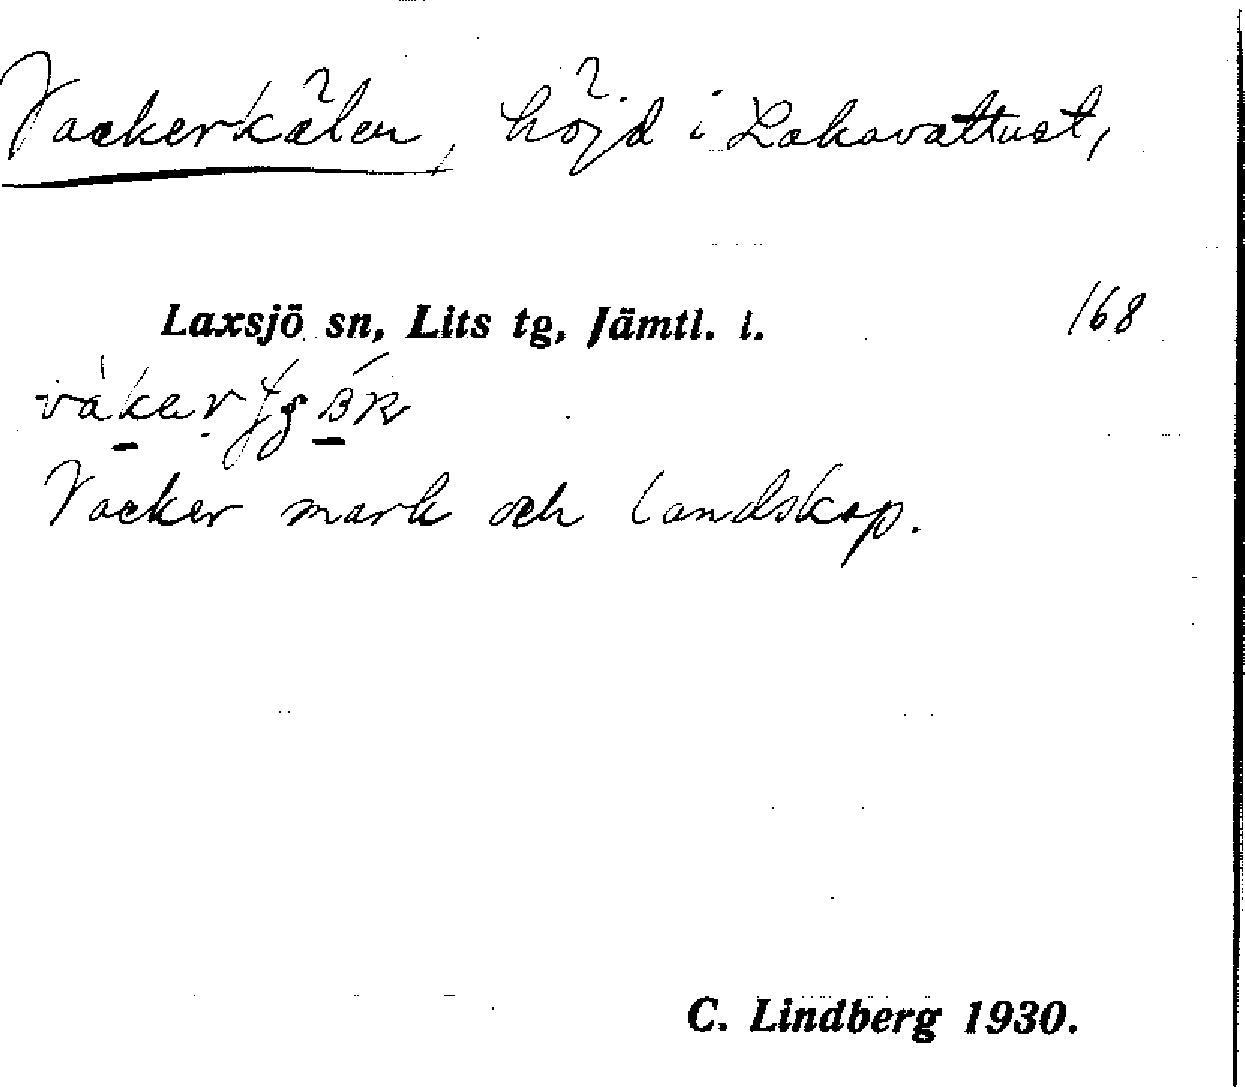 Vackerkälen, höjd i Laksavattnet,
Laxsjö sn, Lits tg, Jämtl. l.
168
Vacker mark och landskap.
C. Lindberg 1930.